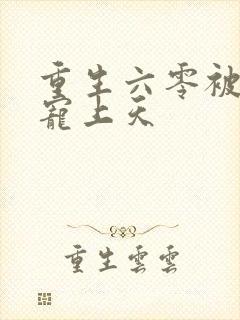 重生六零被
寵上天
重生雲雲